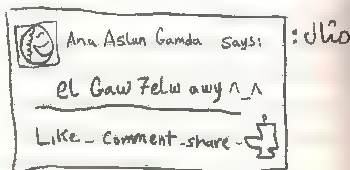 Ana Aslun Gamda says:
مثال :
el Gaw 7elw awy ^_^
Like - comment - share -